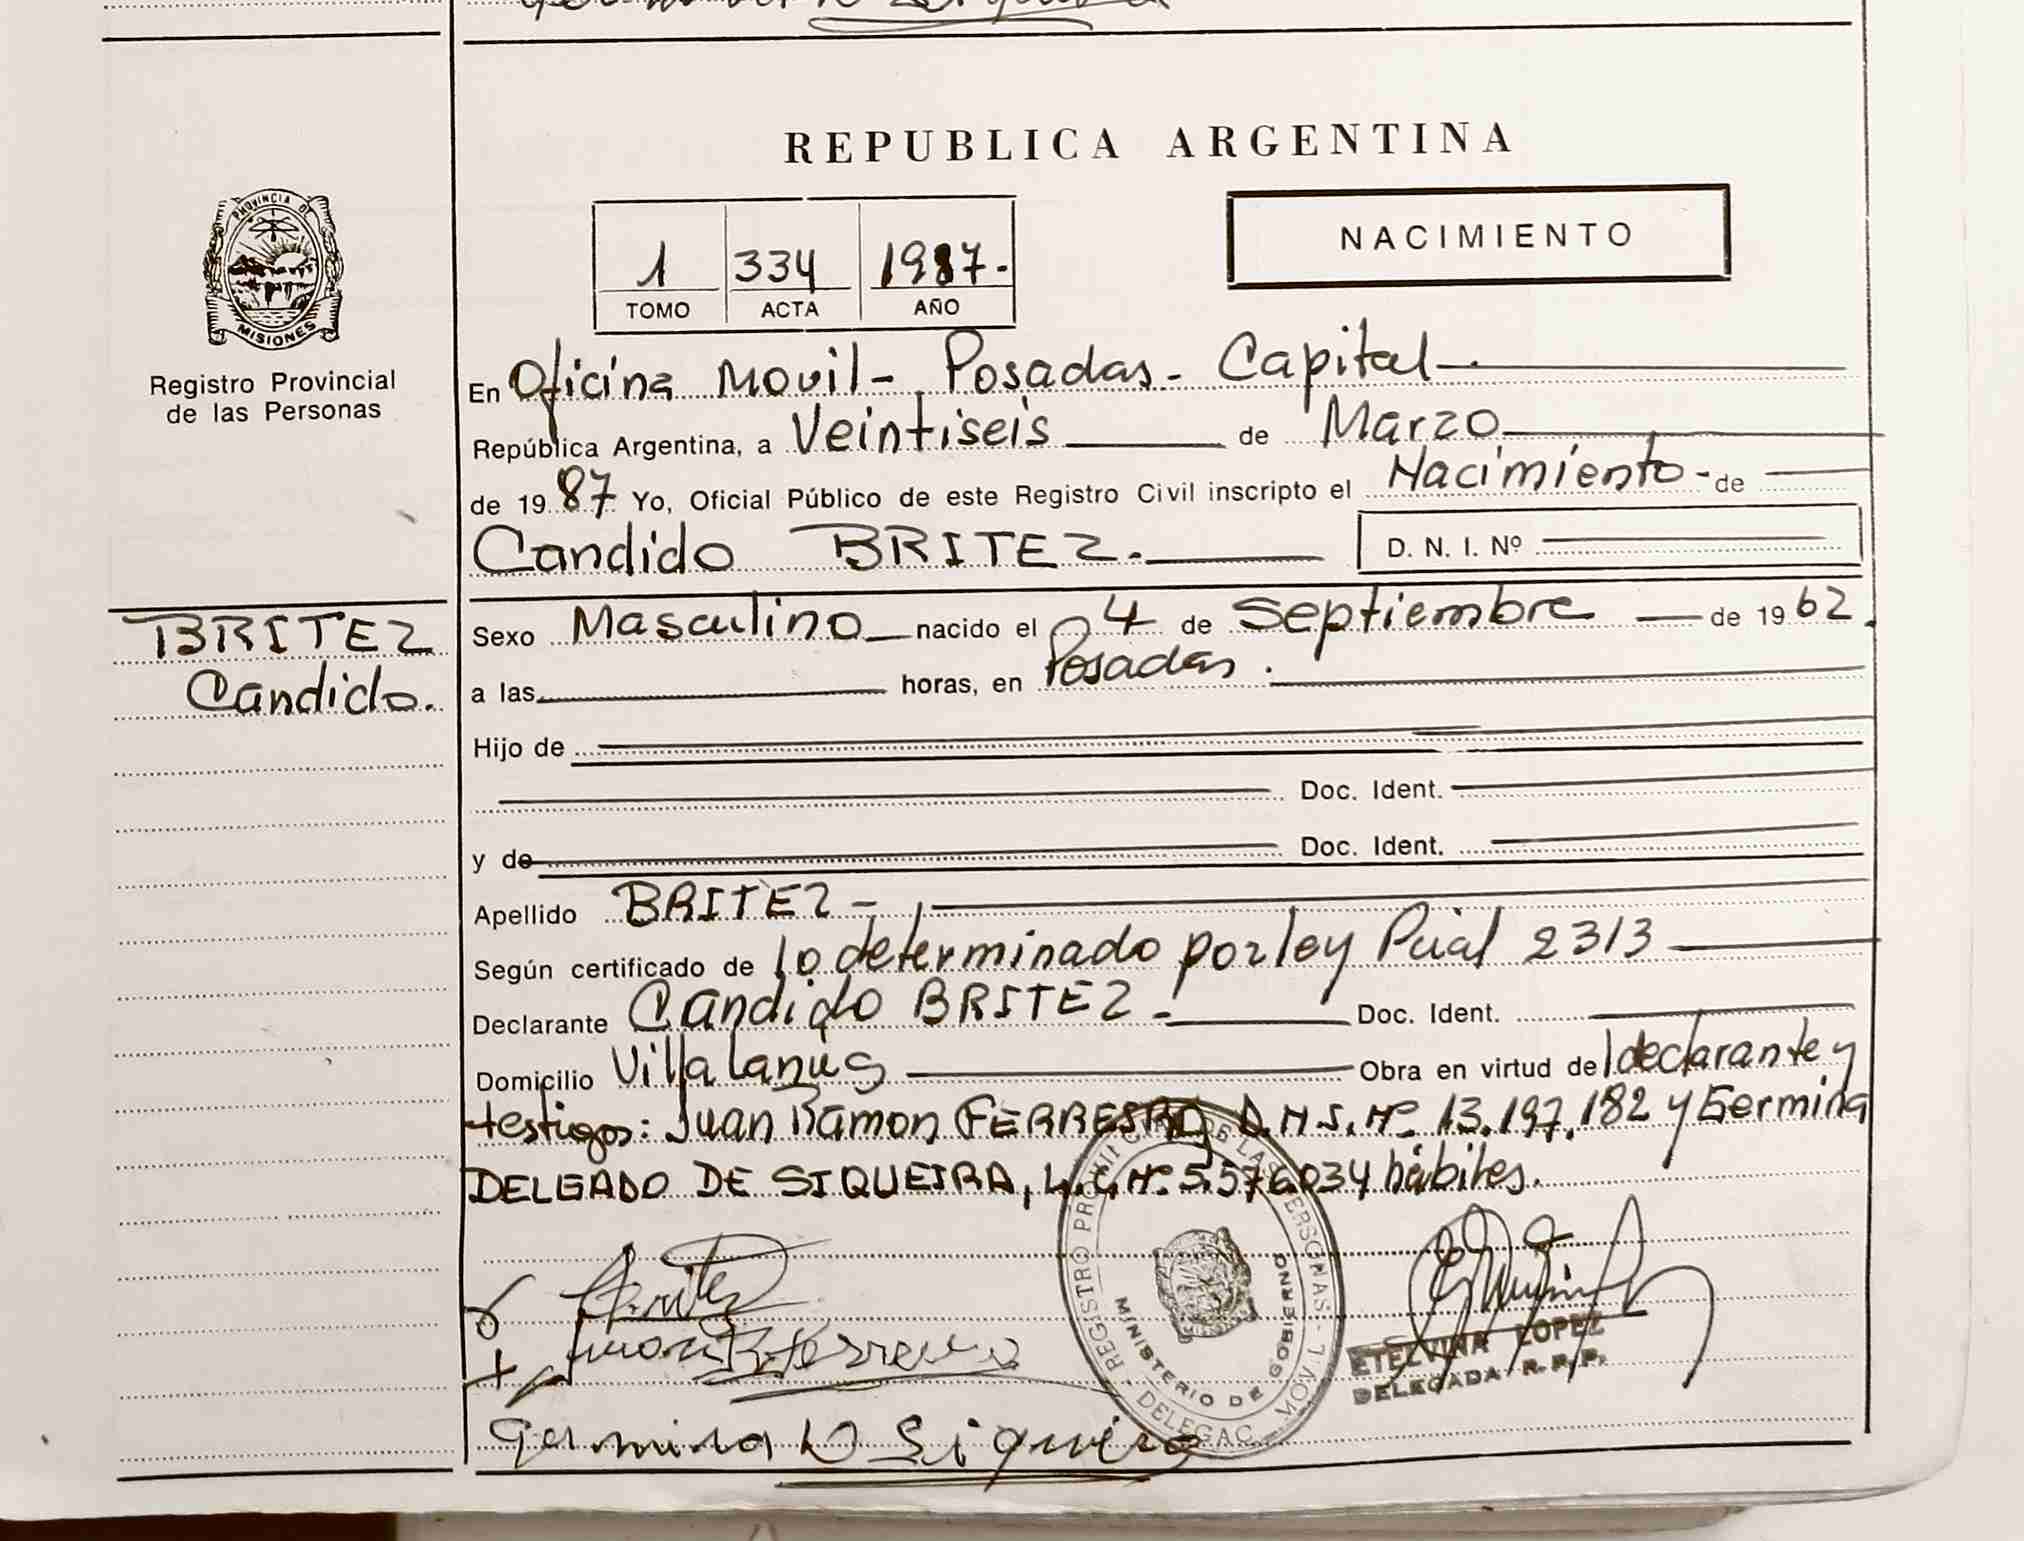 REPUBLICA ARGENTINA
PROVINCIA DE
MISIONES
Registro Provincial
de las Personas
1 334 1987.-
TOMO ACTA AÑO
NACIMIENTO
En Oficina Movil - Posadas - Capital
República Argentina, a Veintiseis de Marzo
de 1987 Yo, Oficial Público de este Registro Civil inscripto el Nacimiento - de
Candido BRITEZ.
D. N. I. Nº
BRITEZ
Candido.
Sexo Masculino nacido el 04 de Septiembre de 1962.
a las horas, en Posadas.
Hijo de
Doc. Ident.
y de Doc. Ident.
Apellido BRITEZ -
Según certificado de lo determinado por ley Pcial 2313
Declarante Candido BRITEZ - Doc. Ident.
Domicilio Villa Lanus Obra en virtud de l declarante y
testigos: Juan Ramon D.N.I. Nº 13.197.182 y Germina
DELGADO DE SIQUEIRA, L.C. Nº 5.576.034 hábiles.
REGISTRO DE LAS PERSONAS - DELEGAC. MOVIL
MINISTERIO DE GOBIERNO
ETELVINA LOPEZ
DELEGADA R. P. P.
Germina D Siqueira